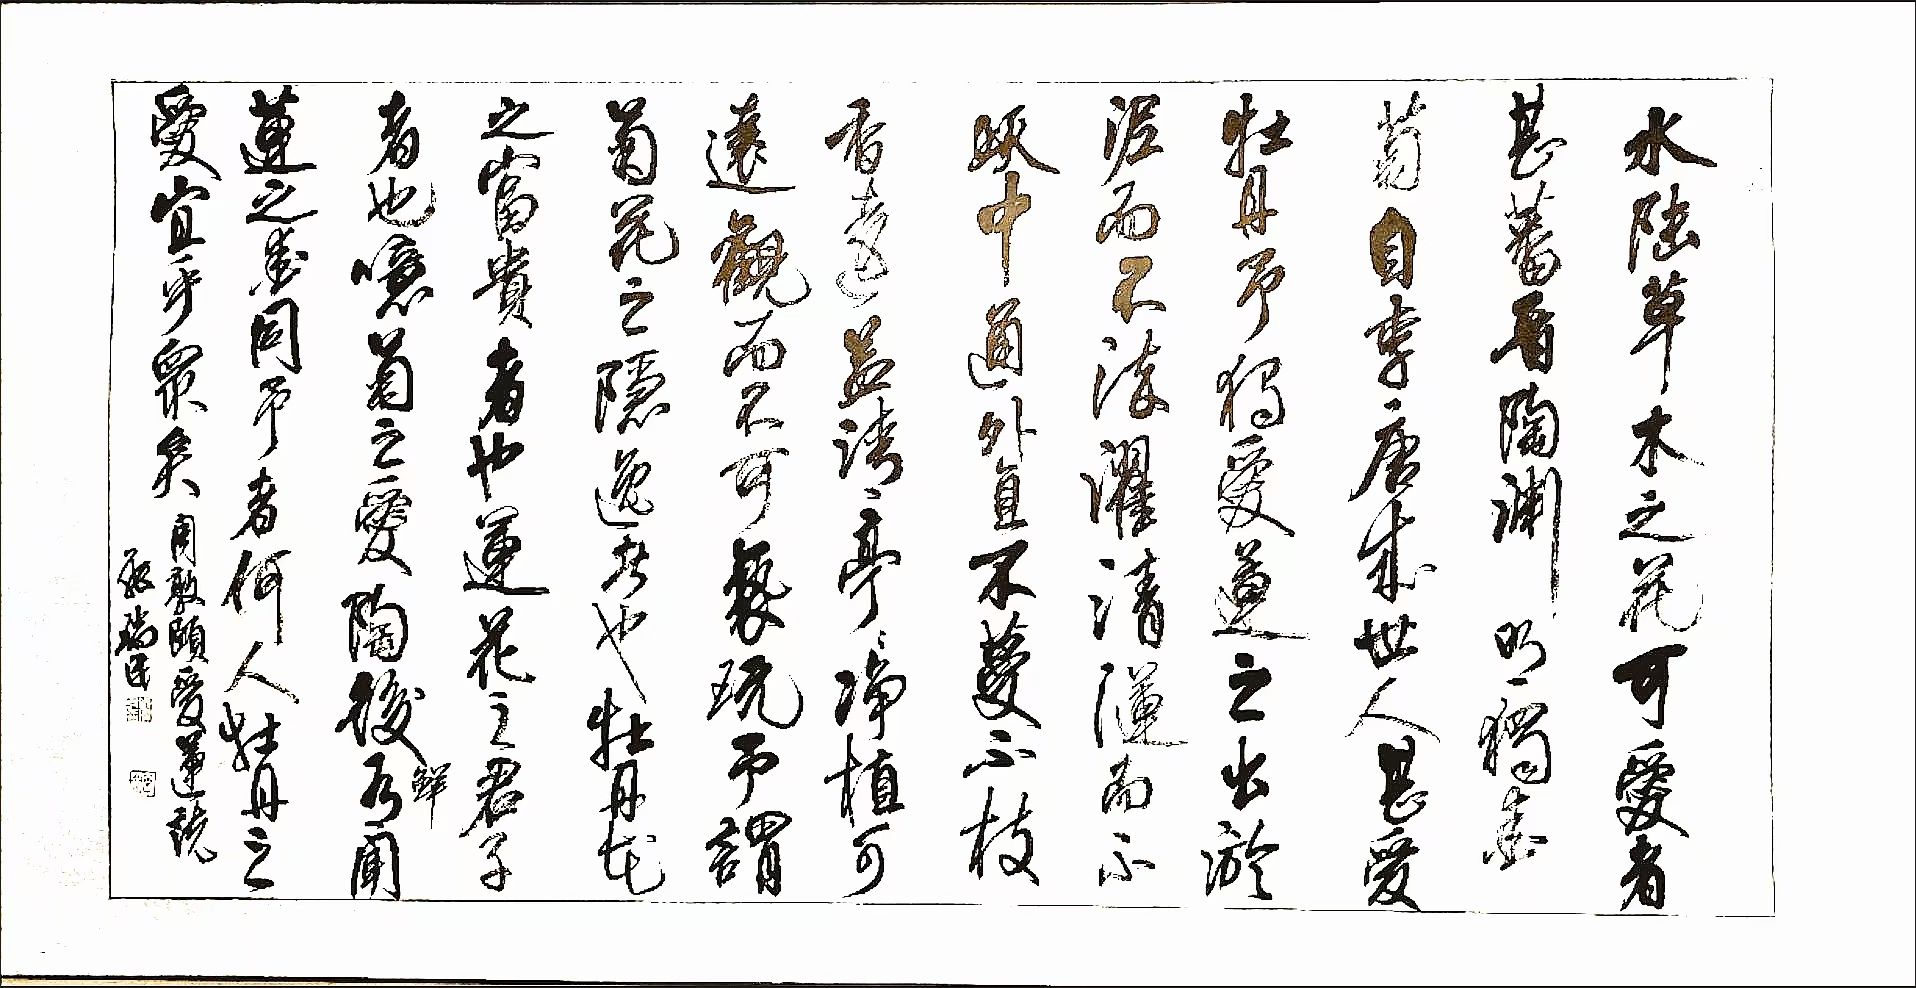 水陸草木之花可愛者
甚蕃晋陶渊明獨愛
菊自李唐来世人甚爱
牡丹予獨愛蓮之出淤
泥而不染濯清漣而不
妖中通外直不蔓不枝
香遠益清亭々净植可
遠觀而不可褻玩予謂
菊花之隱逸者也牡丹花
之富貴者也蓮花之君子
者也噫菊之愛陶後鮮有聞
蓮之愛同予者何人牡丹之
愛宜乎衆矣 周敦頤愛蓮説
張瑞民